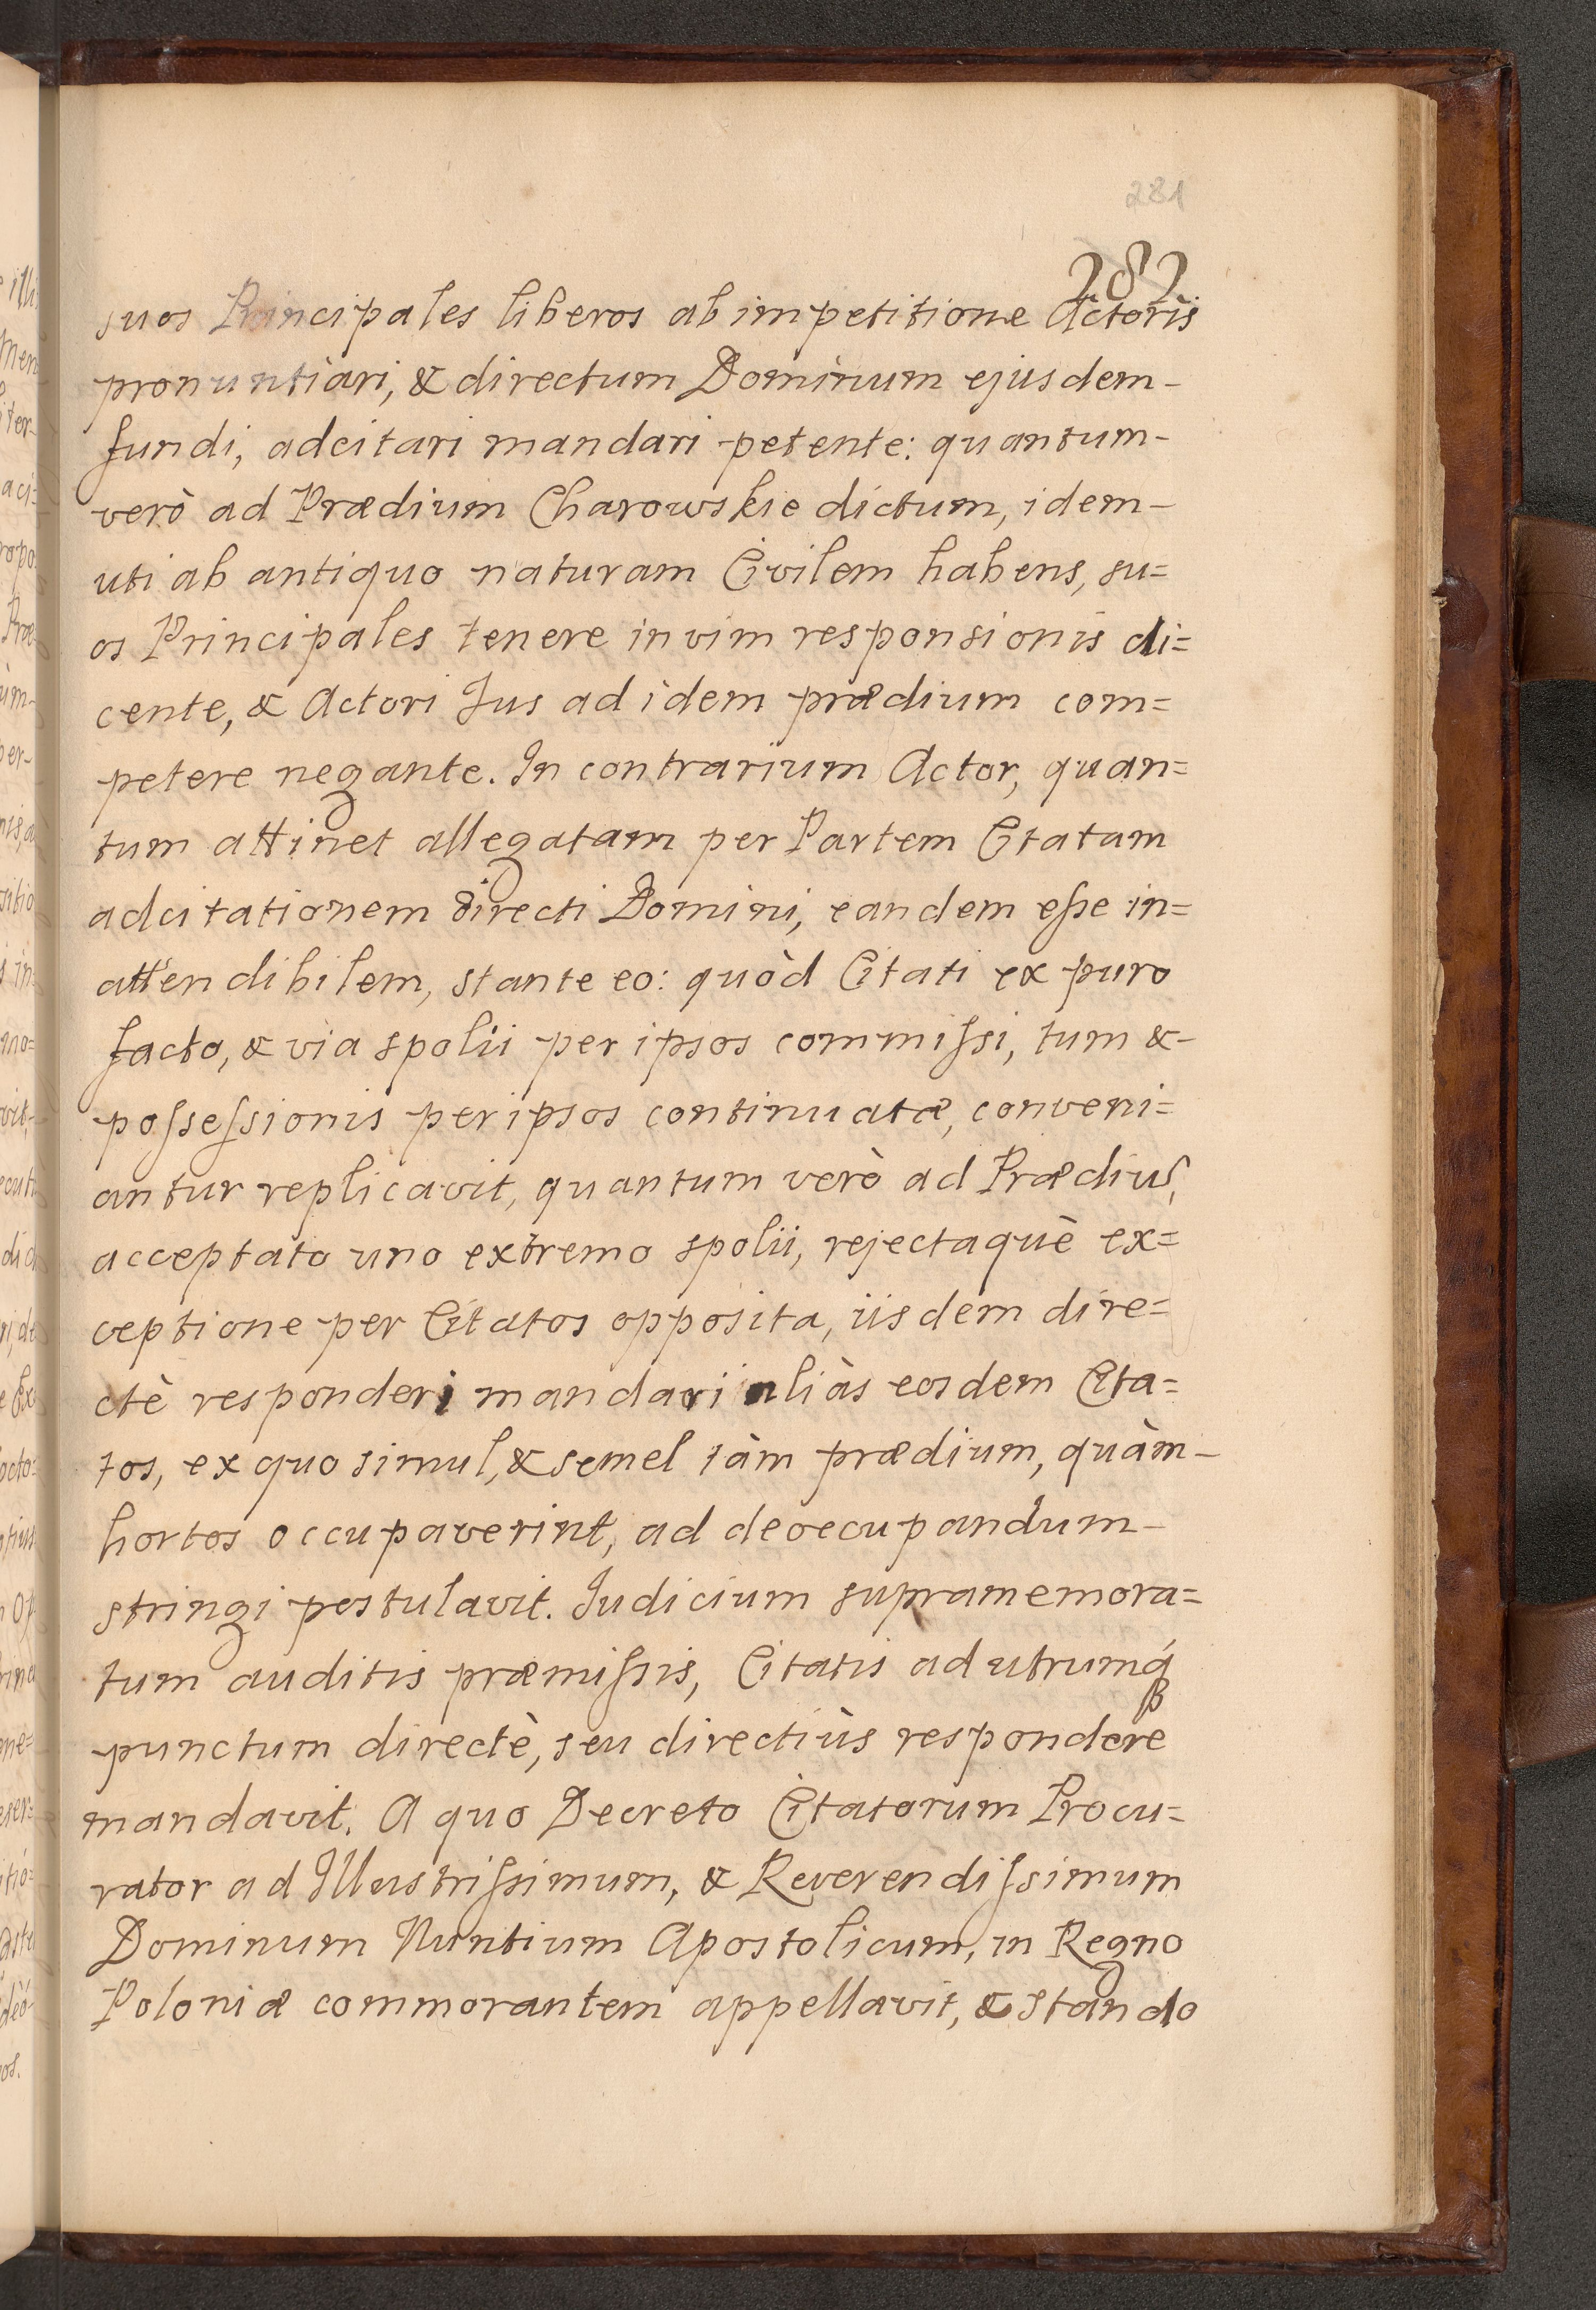 281
282
suos Principales liberos ab impetitione Actoris
pronuntiari, & directum Dominum ejusdem-
fundi, adcitari mandari petente: quantum-
verò ad Prædium Charowskie dictum, idem-
uti ab antiquo naturam Civilem habens, su=
os Principales tenere in vim responsionis di=
cente, & Actori Jus ad idem prædium com=
petere negante. In contrarium Actor, quan=
tum attinet allegatam per Partem Citatam
adcitationem directi Domini, eandem eſse in=
attendibilem, stante eo: quòd Citati ex puro
facto, & via spolii per ipsos commiſsi, tum &-
poſseſsionis per ipsos continuatæ, conveni=
antur replicavit, quantum verò ad Prædiuſ,
acceptato uno extremo spolii, rejectaquè ex=
ceptione per Citatos opposita, iisdem dire=
ctè responderi mandari aliàs eosdem Cita=
tos, ex quo simul, & semel tàm prædium, quàm-
hortos occupaverint, ad deoccupandum-
stringi postulavit. Judicium supramemora=
tum auditis præmiſsis, Citatis ad utrumq́ꝫ
punctum directè, seu directiùs respondere
mandavit. A quo Decreto Citatorum Procu=
rator ad Illustriſsimum, & Reverendiſsimum
Dominum Nuntium Apostolicum, in Regno
Poloniæ commorantem appellavit, & stando